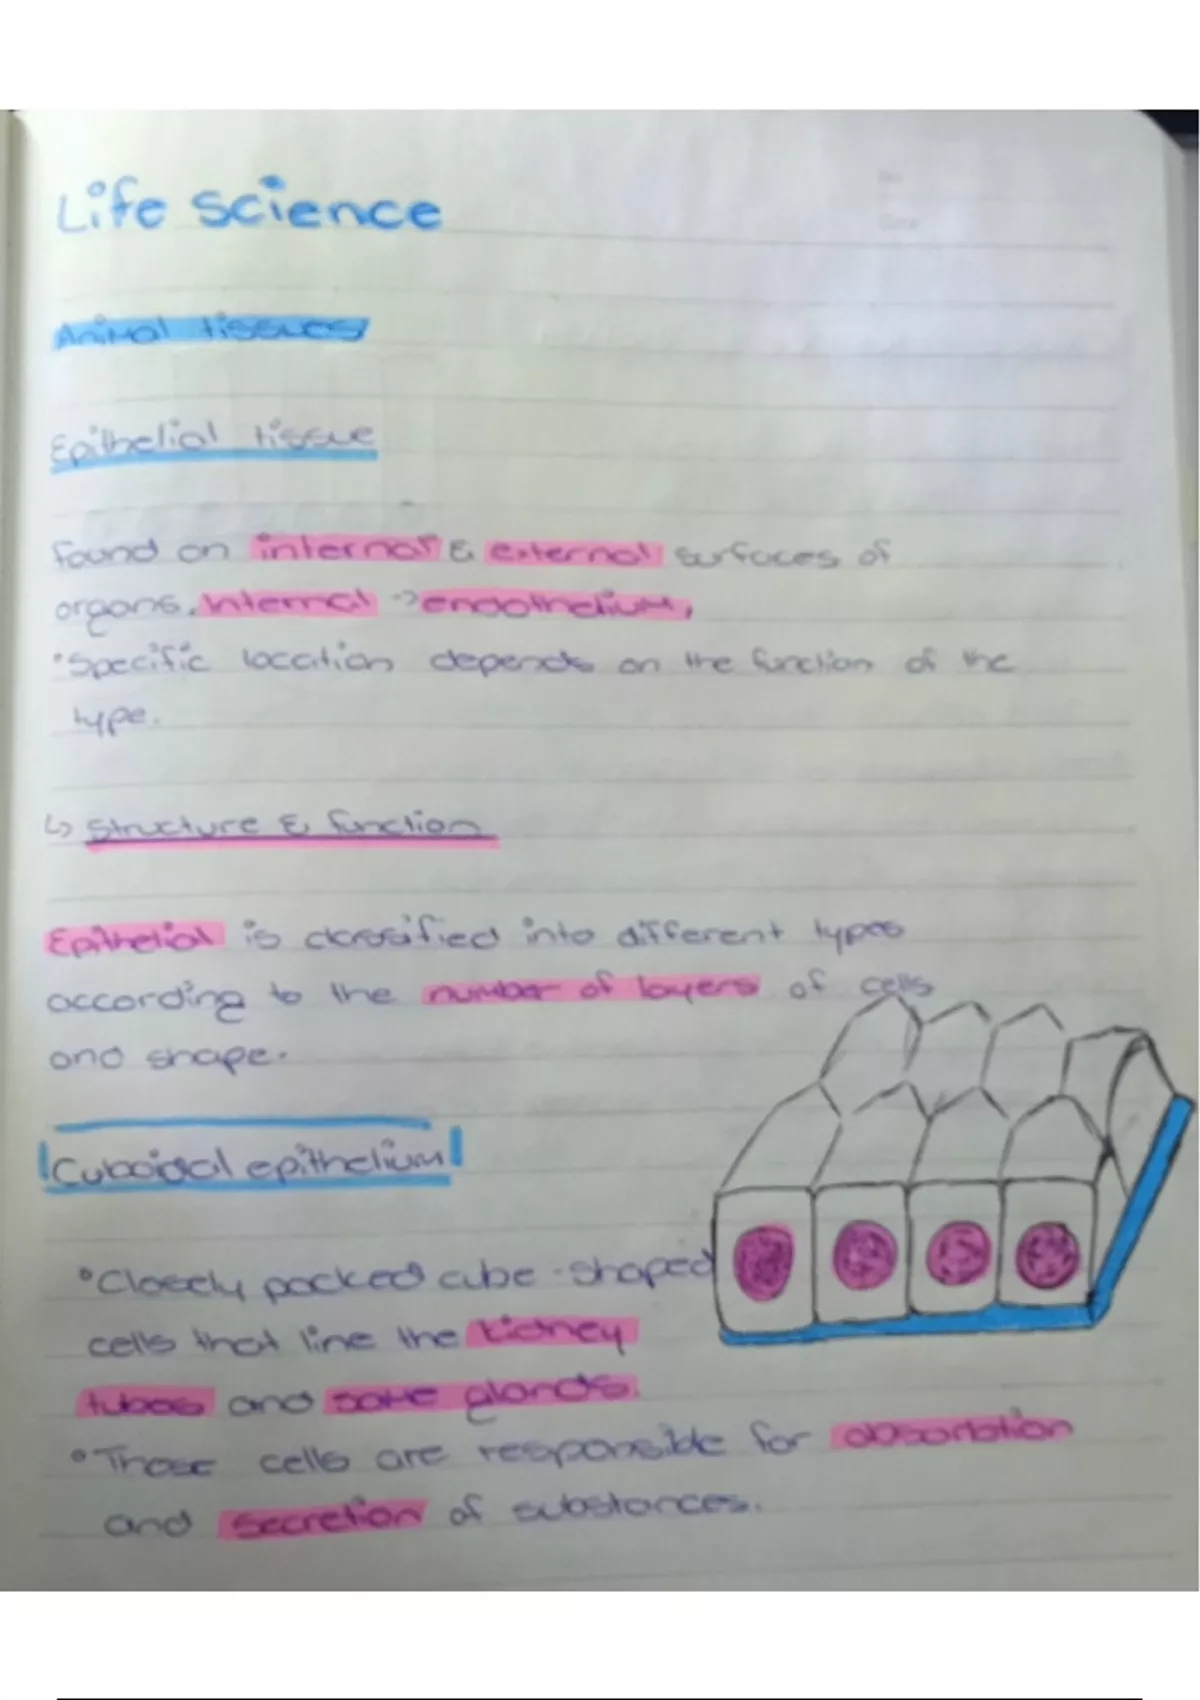 Life science
Animal tissues
Epithelial tissue
found on internal & external surfaces of
organs. Internal -> endothelium,
•Specific location depends on the function of the
type.
↳ Structure & function
Epithelial is classified into different types
according to the number of layers of cells
and shape.
Cuboidal epithelium
•Closely packed cube-shaped
cells that line the kidney
tubes and some glands.
•These cells are responsible for absorbtion
and secretion of substances.